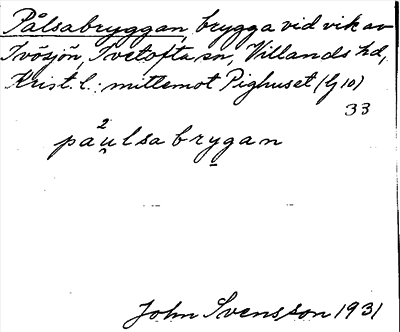 Pålsabryggan, brygga vid vik av
Ivösjön, Ivetofta sn, Villands hd,
Krist. l.: mittemot Pighuset (G 10)
33
2
paulsa brygan
John Svensson 1931